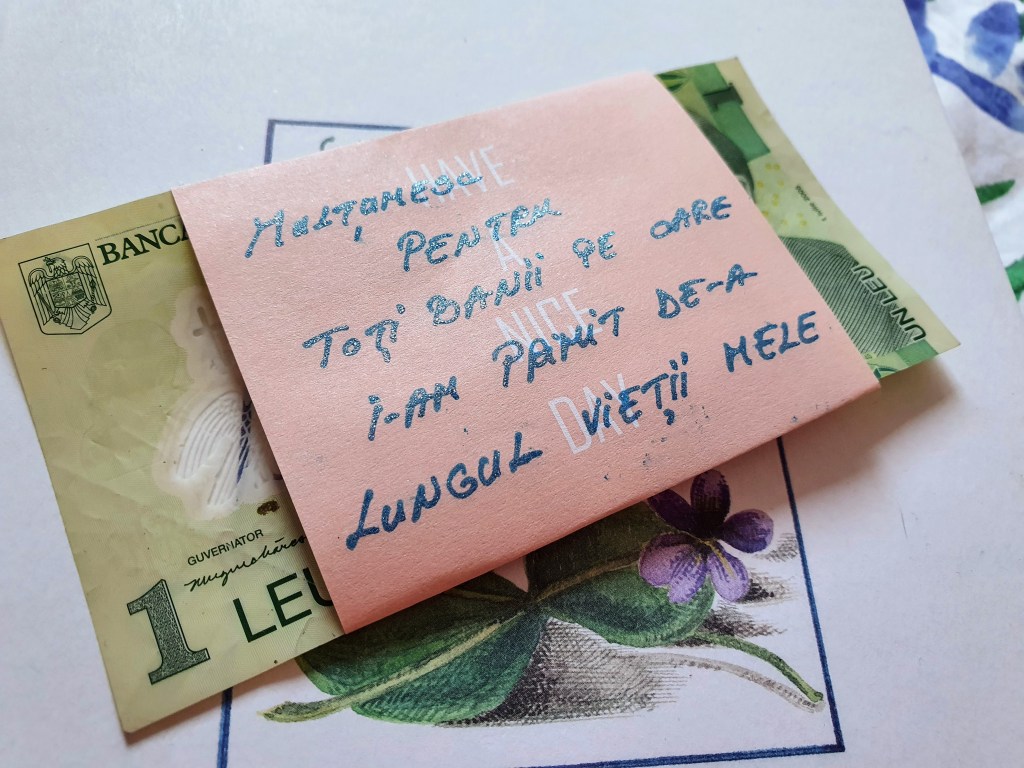 HAVE
A
NICE
DAY
MulțumesC
PENTRU
Toți BANII PE CARE
i-AM PRIMIT DE-A
LUNGUL VIEȚII MELE
BANCA
GUVERNATOR
1 LEU
UN LEU